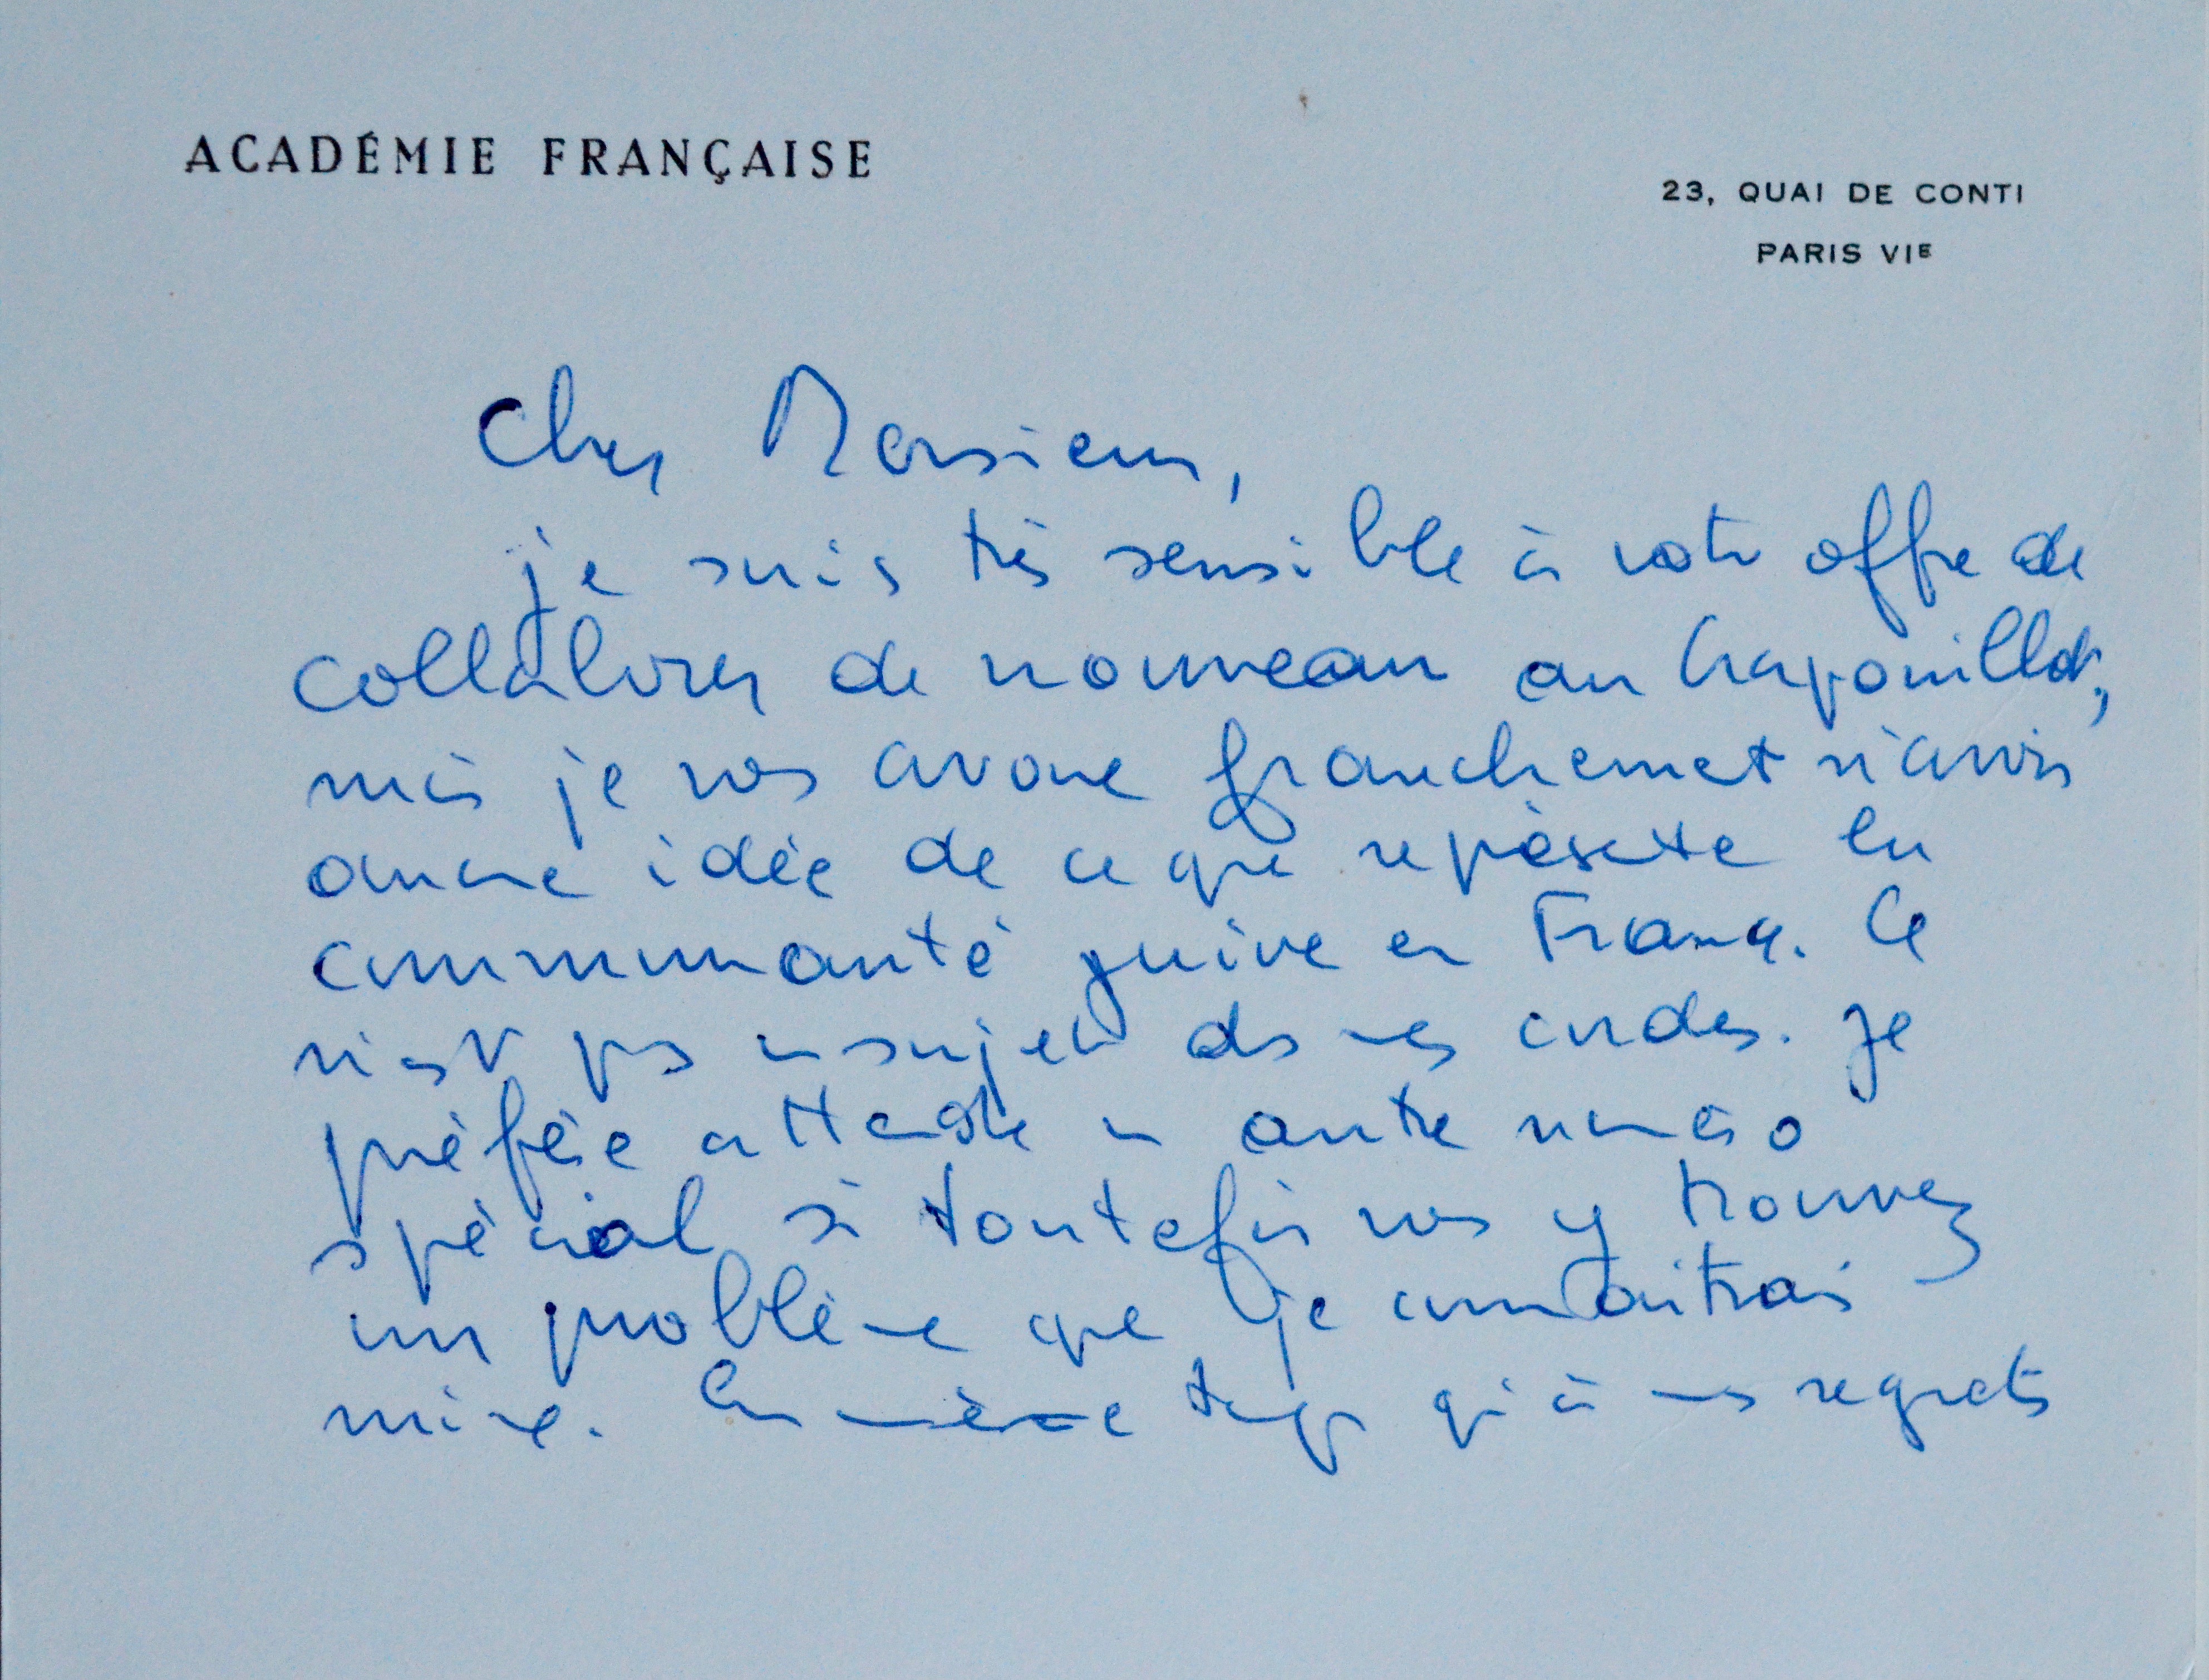 ACADÉMIE FRANÇAISE
23, QUAI DE CONTI
PARIS VIE
Cher Monsieur,
je suis très sensible à votre offre de
collaborer de nouveau au Crapouillot,
mais je vous avoue franchement n'avoir
aucune idée de ce que représente la
communauté juive en France. Ce
n'est pas un sujet ds mes cordes. Je
préfère attendre un autre numéro
spécial si toutefois vous y trouvez
un problème que je connaîtrais
mieux. En même temps qu'à mes regrets